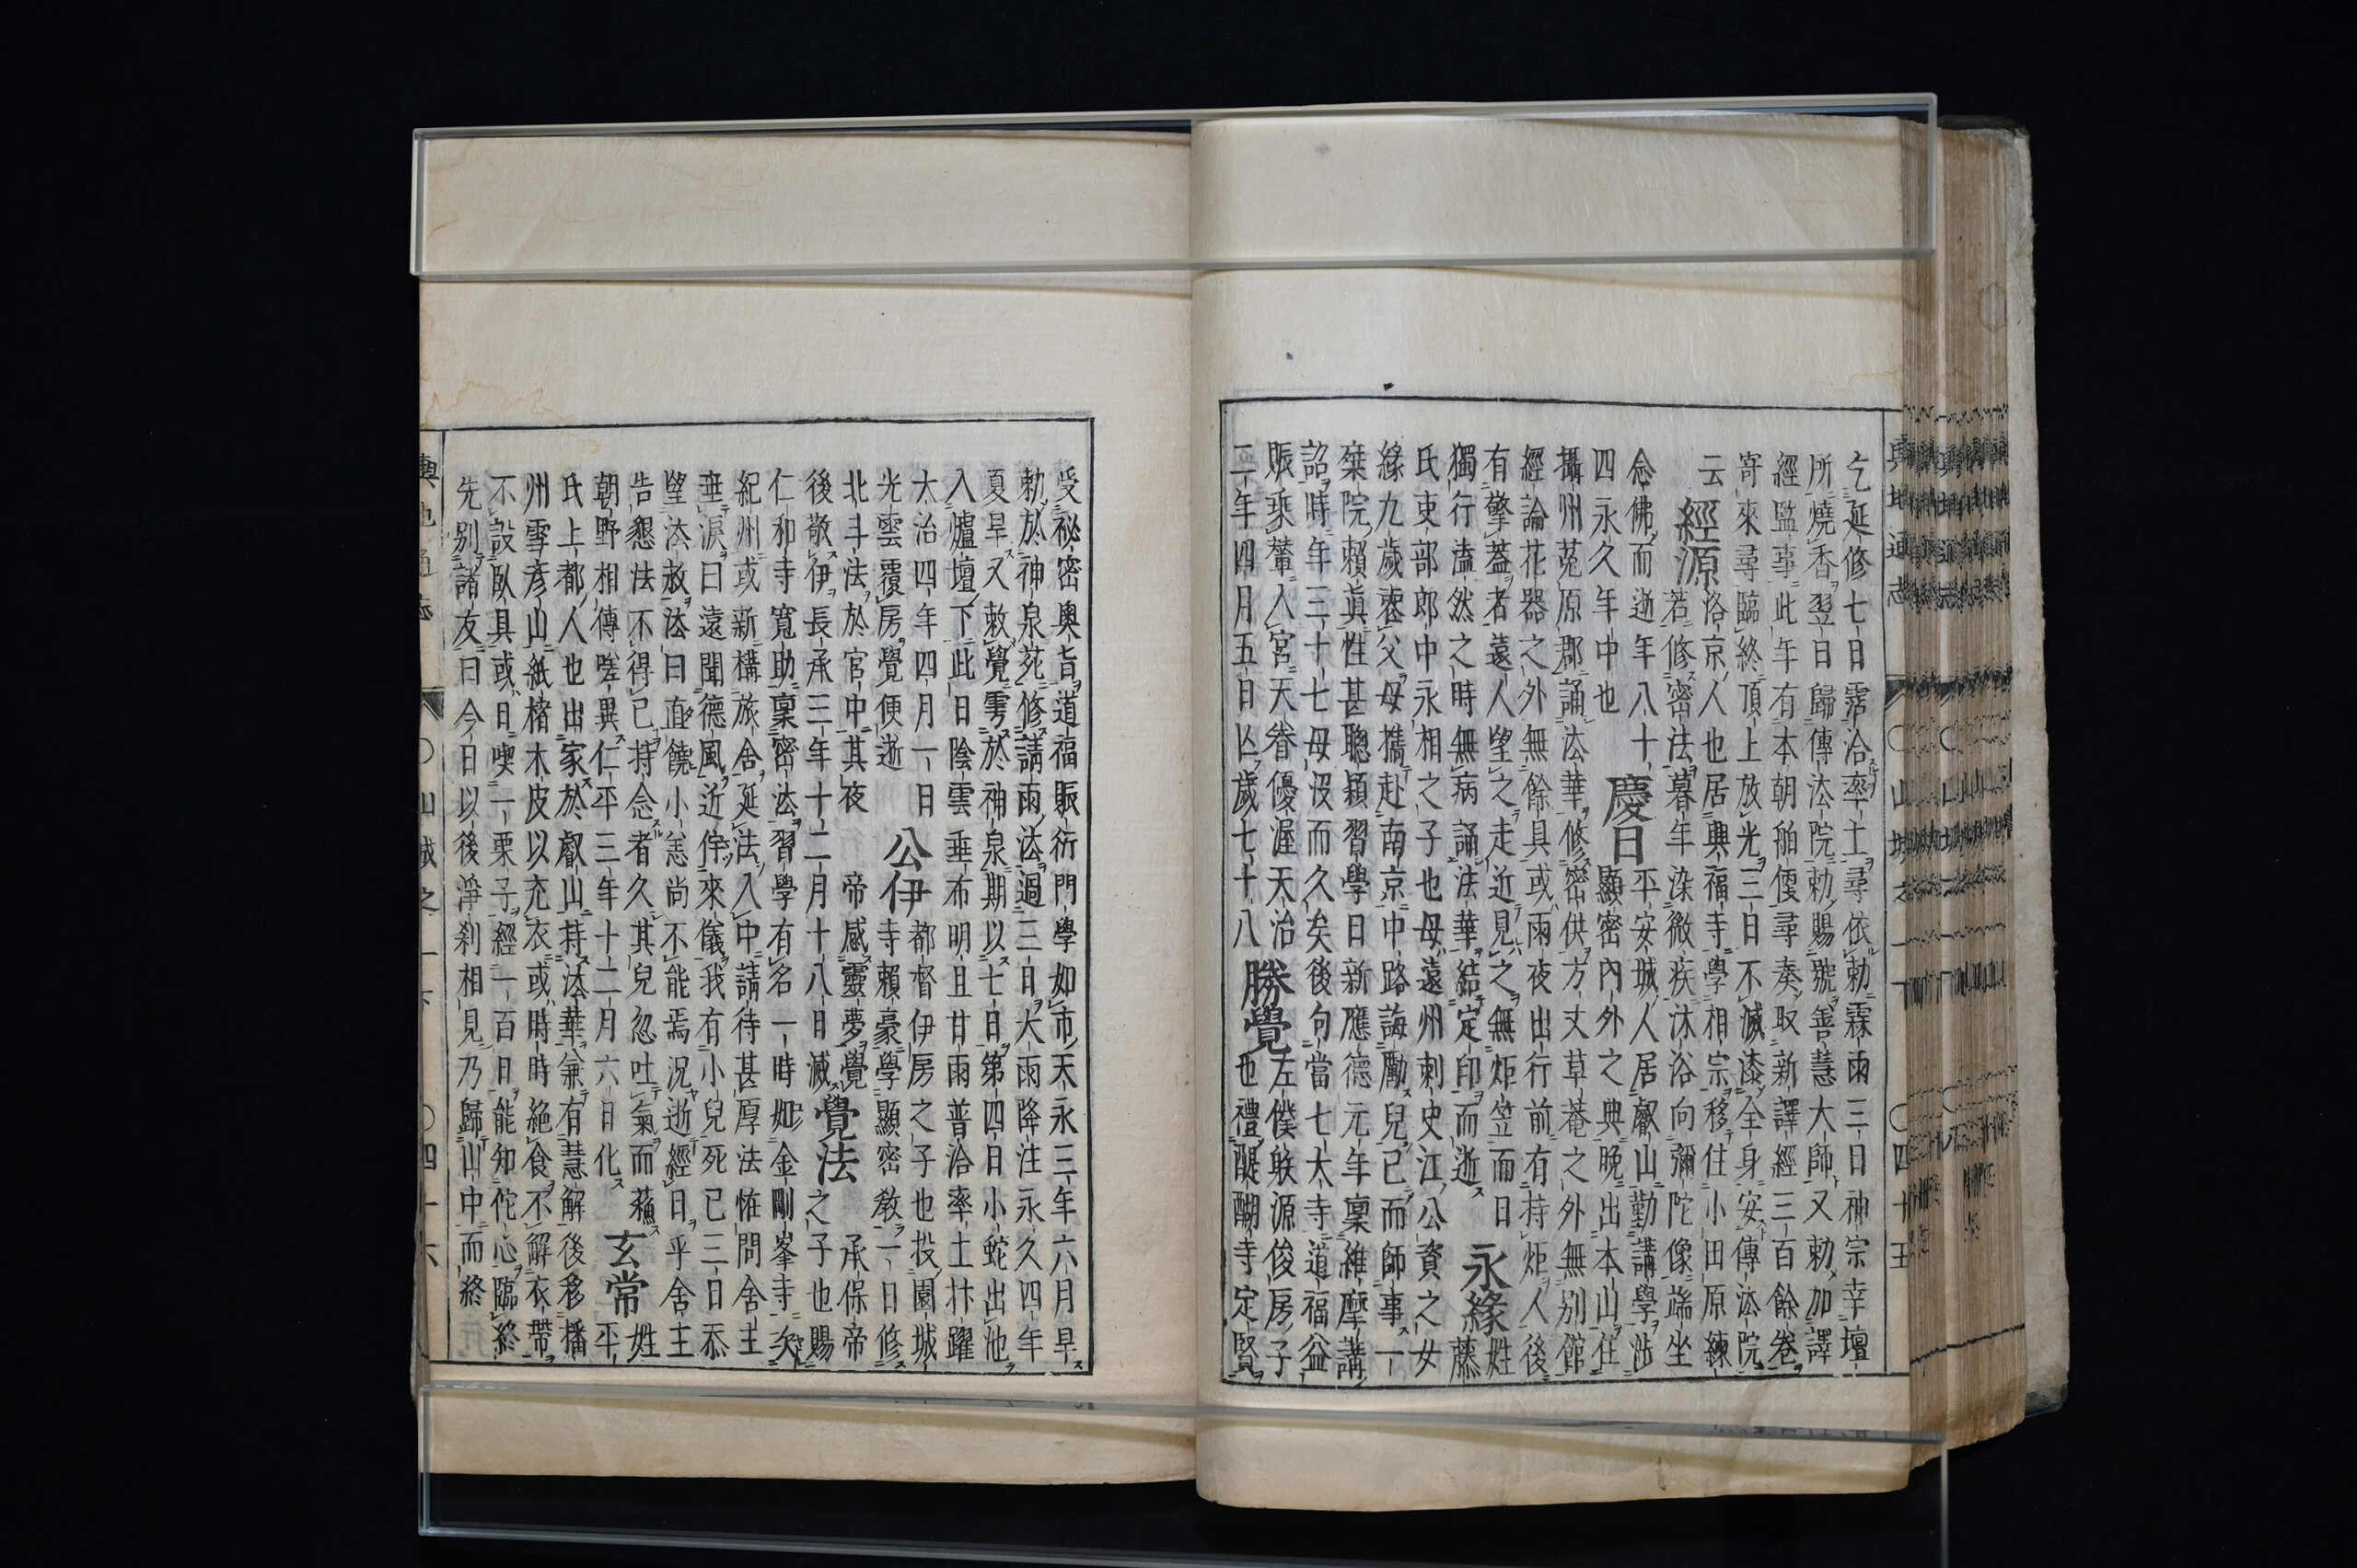 輿地通志 〇山城之一下 〇四十五
乞延修七日霑洽率土尋依勅霖雨三日神宗幸壇
所燒香翌日歸傳法院勅賜號善慧大師又勅加譯
經監事此年有本朝舶便尋奏取新譯經三百餘卷
寄來尋臨終頂上放光三日不滅漆全身安傳法院
云 經源 洛京人也居興福寺學相宗移住小田原練
若修密法暮年染微疾沐浴向彌陀像端坐
念佛而逝年八十 慶日 平安城人居叡山勤講學涉
四永久年中也 顯密內外之典晚出本山住
攝州菟原郡誦法華修密供方丈草菴之外無別館
經論花器之外無餘具或雨夜出行前有持炬人後
有擎蓋者遠人望之走近見之無炬笠而日 永緣 姓
獨行溘然之時無病誦法華結定印而逝 藤
氏吏部郎中永相之子也母遠州刺史江公資之女
緣九歲喪父母携赴南京中路誨勵兒已而師事一
桀院賴眞性甚聰穎習學日新應德元年稟維摩講
詔時年三十七母沒而久矣後句當七大寺道福益
賑乘輦入宮天眷優渥天治 勝覺 左僕躾源俊房子
二年四月五日亾歲七十八 也禮醍醐寺定賢
受祕密奧旨道福賑衍門學如市天永三年六月旱
勅於神泉苑修請雨法過三日大雨降注永久四年
夏旱又敕覺雩於神泉期以七日第四日小蛇出池
入爐壇下此日陰雲垂布明且甘雨普洽率土抃躍
大治四年四月一日 公伊 都督伊房之子也投園城
光雲覆房覺便逝 寺賴豪學顯密教一日修
北斗法於宮中其夜 帝感靈夢覺 覺法 承保帝
後敬伊長承三年十二月十八日滅 之子也賜
仁和寺寬助稟密法習學有名一時如金剛峯寺次
紀州或新構旅舍延法入中請待甚厚法恠問舍主
垂淚曰遠聞德風近佇來儀我有小兒死已三日忝
望法赦法曰面饒小恙尚不能焉況逝經日乎舍主
告懇法不得已持念者久其兒忽吐氣而蘓 玄常 姓
朝野相傳嗟異仁平三年十二月六日化 平
氏上都人也出家於叡山持法華兼有慧解後移播
州雪彥山紙楮木皮以充衣或時時絕食不解衣帶
不設臥具或日喫一栗子經一百日能知佗心臨終
先別諸友曰今日以後淨刹相見乃歸山中而終
輿地通志 〇山城之一下 〇四十六